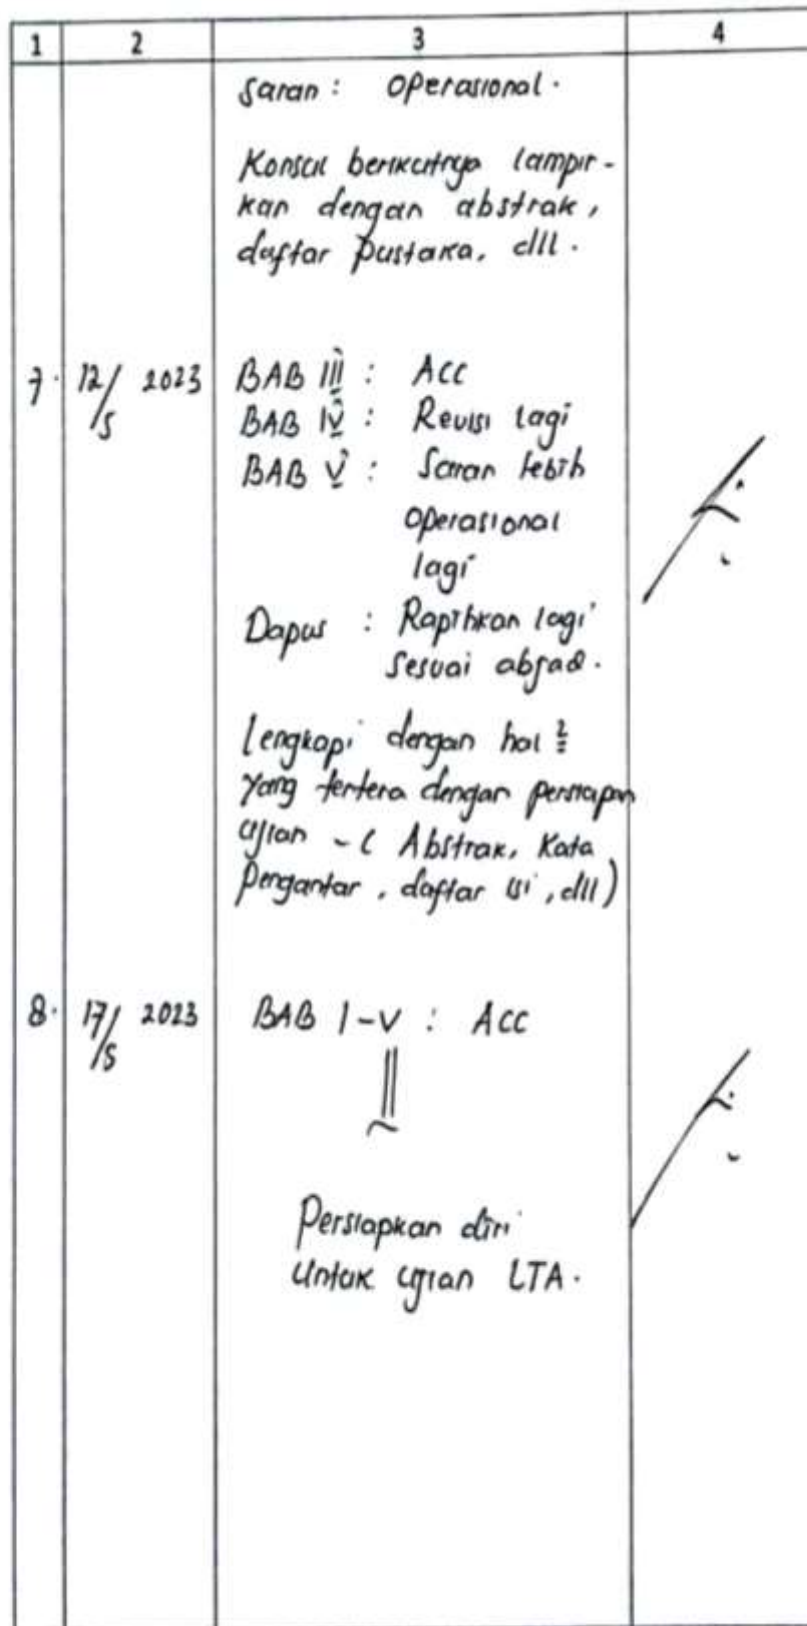 1 2 3 4
Saran : Operasional .
Konsul berikutnya lampir-
kan dengan abstrak ,
daftar pustaka, dll .
7. 12/5 2023 BAB III : Acc
BAB IV : Revisi lagi
BAB V : Saran lebih
operasional
lagi
Dapus : Rapihkan lagi
sesuai abjad .
Lengkapi dengan hal 2
yang tertera dengan persiapan
ujian - ( Abstrak, Kata
Pengantar , daftar isi , dll )
8. 17/5 2023 BAB I - V : Acc
Persiapkan diri
untuk ujian LTA .